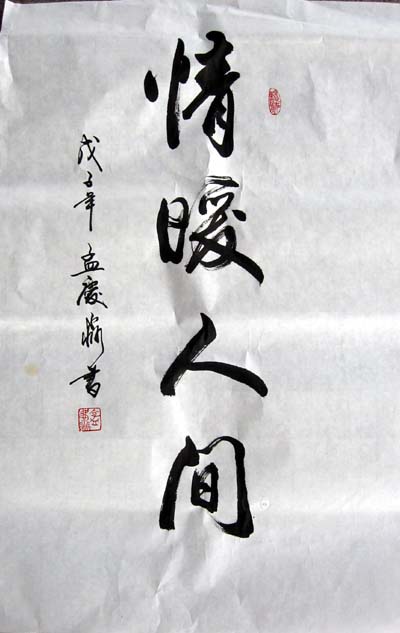 情暖人间
戊子年 孟庆 书